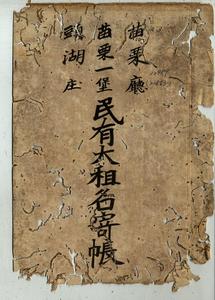 苗栗廳
苗栗一堡民有大租名寄帳
頭湖庄